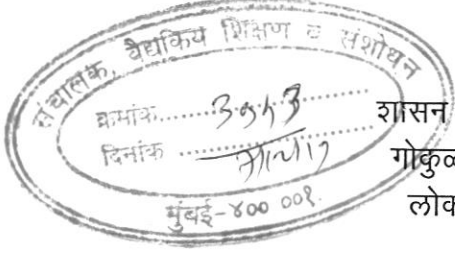 संचालक, वैद्यकिय शिक्षण व संशोधन
क्रमांक..............
दिनांक ..............
मुंबई-४०० ००१.
शासन
गोकुळ
लोक